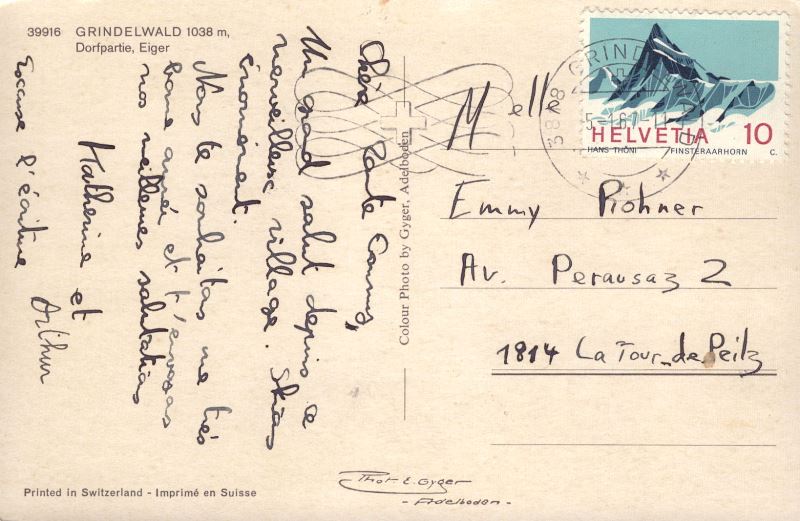 39916 GRINDELWALD 1038 m,
Dorfpartie, Eiger
Chère Tante Emmy,
Un grand salut depuis ce
merveilleux village. Skions
énormément.
Nous te souhaitons une très
bonne année et t'envoyons
nos meilleures salutations
Katherine et
Arthur
Excuse l'écriture
Colour Photo by Gyger, Adelboden
GRINDELWALD
3818
HELVETIA 10
HANS THÖNI FINSTERAARHORN C.
Melle
Emmy Rohner
Av. Perausaz 2
1814 La Tour-de-Peilz
Printed in Switzerland - Imprimé en Suisse
Phot. E. Gyger
- Adelboden -